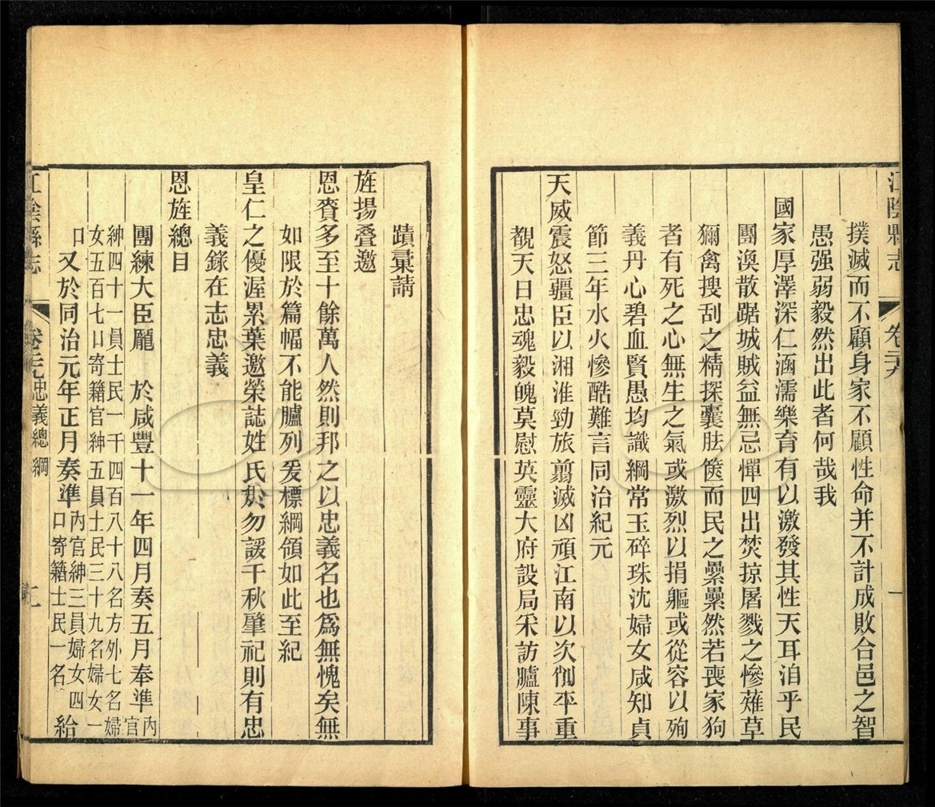 江陰縣志 卷二十八 一
撲滅而不顧身家不顧性命并不計成敗合邑之智
愚强弱毅然出此者何哉我
國家厚澤深仁涵濡樂育有以激發其性天耳洎乎民
團渙散踞城賊益無忌憚四出焚掠屠戮之慘薙草
獮禽搜刮之精探囊胠篋而民之纍纍然若喪家狗
者有死之心無生之氣或激烈以捐軀或從容以殉
義丹心碧血賢愚均識綱常玉碎珠沈婦女咸知貞
節三年水火慘酷難言同治紀元
天威震怒疆臣以湘淮勁旅翦滅凶頑江南以次刱平重
覩天日忠魂毅魄莫慰英靈大府設局采訪臚陳事
蹟彚請
旌揚叠邀
恩賚多至十餘萬人然則邦之以忠義名也爲無愧矣無
如限於篇幅不能臚列爰標綱領如此至紀
皇仁之優渥累葉邀榮誌姓氏於勿諼千秋肇祀則有忠
義錄在志忠義
恩旌總目
團練大臣龎 於咸豐十一年四月奏五月奉準內官
紳四十一員士民一千四百八十八名方外七名婦
女五百七口寄籍官紳五員士民三十九名婦女一
口又於同治元年正月奏準內官紳三員婦女四口寄籍士民一名給
江陰縣志 忠義總綱